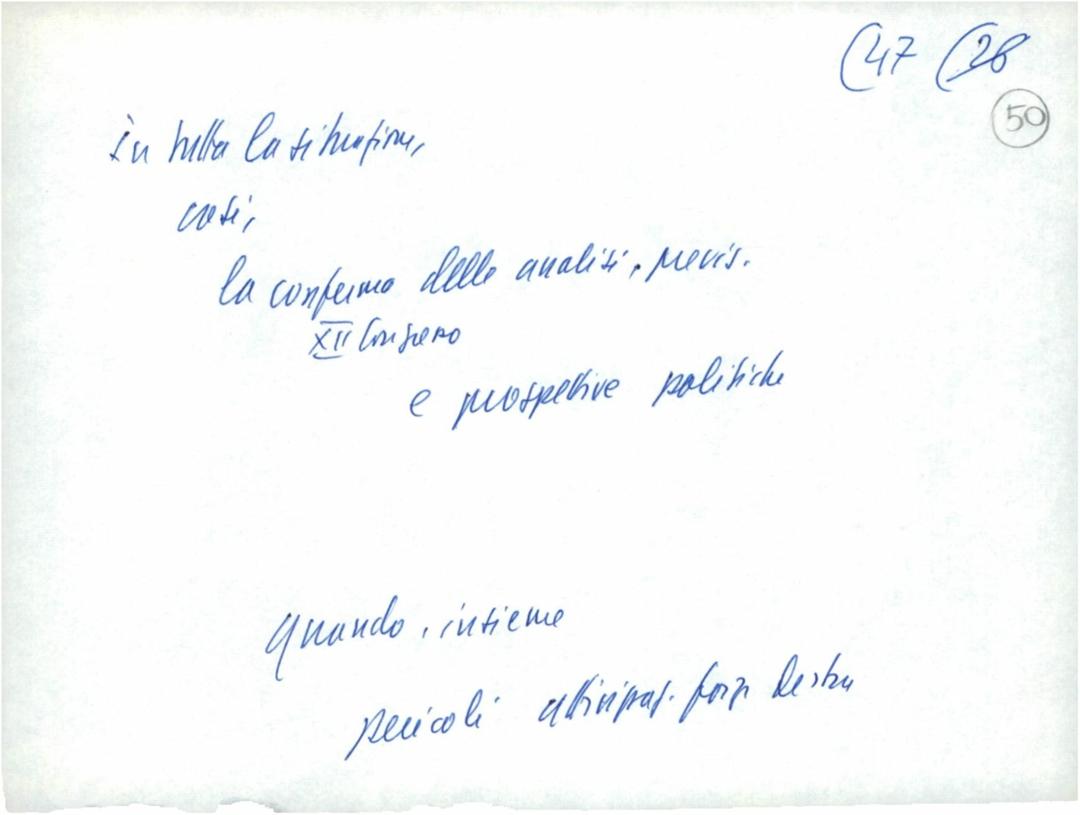 (47 (28
50
in tutta la situazione,
così,
la conferma delle analisi, previs.
XII Congresso
e prospettive politiche
Quando, insieme
pericoli forze Destra